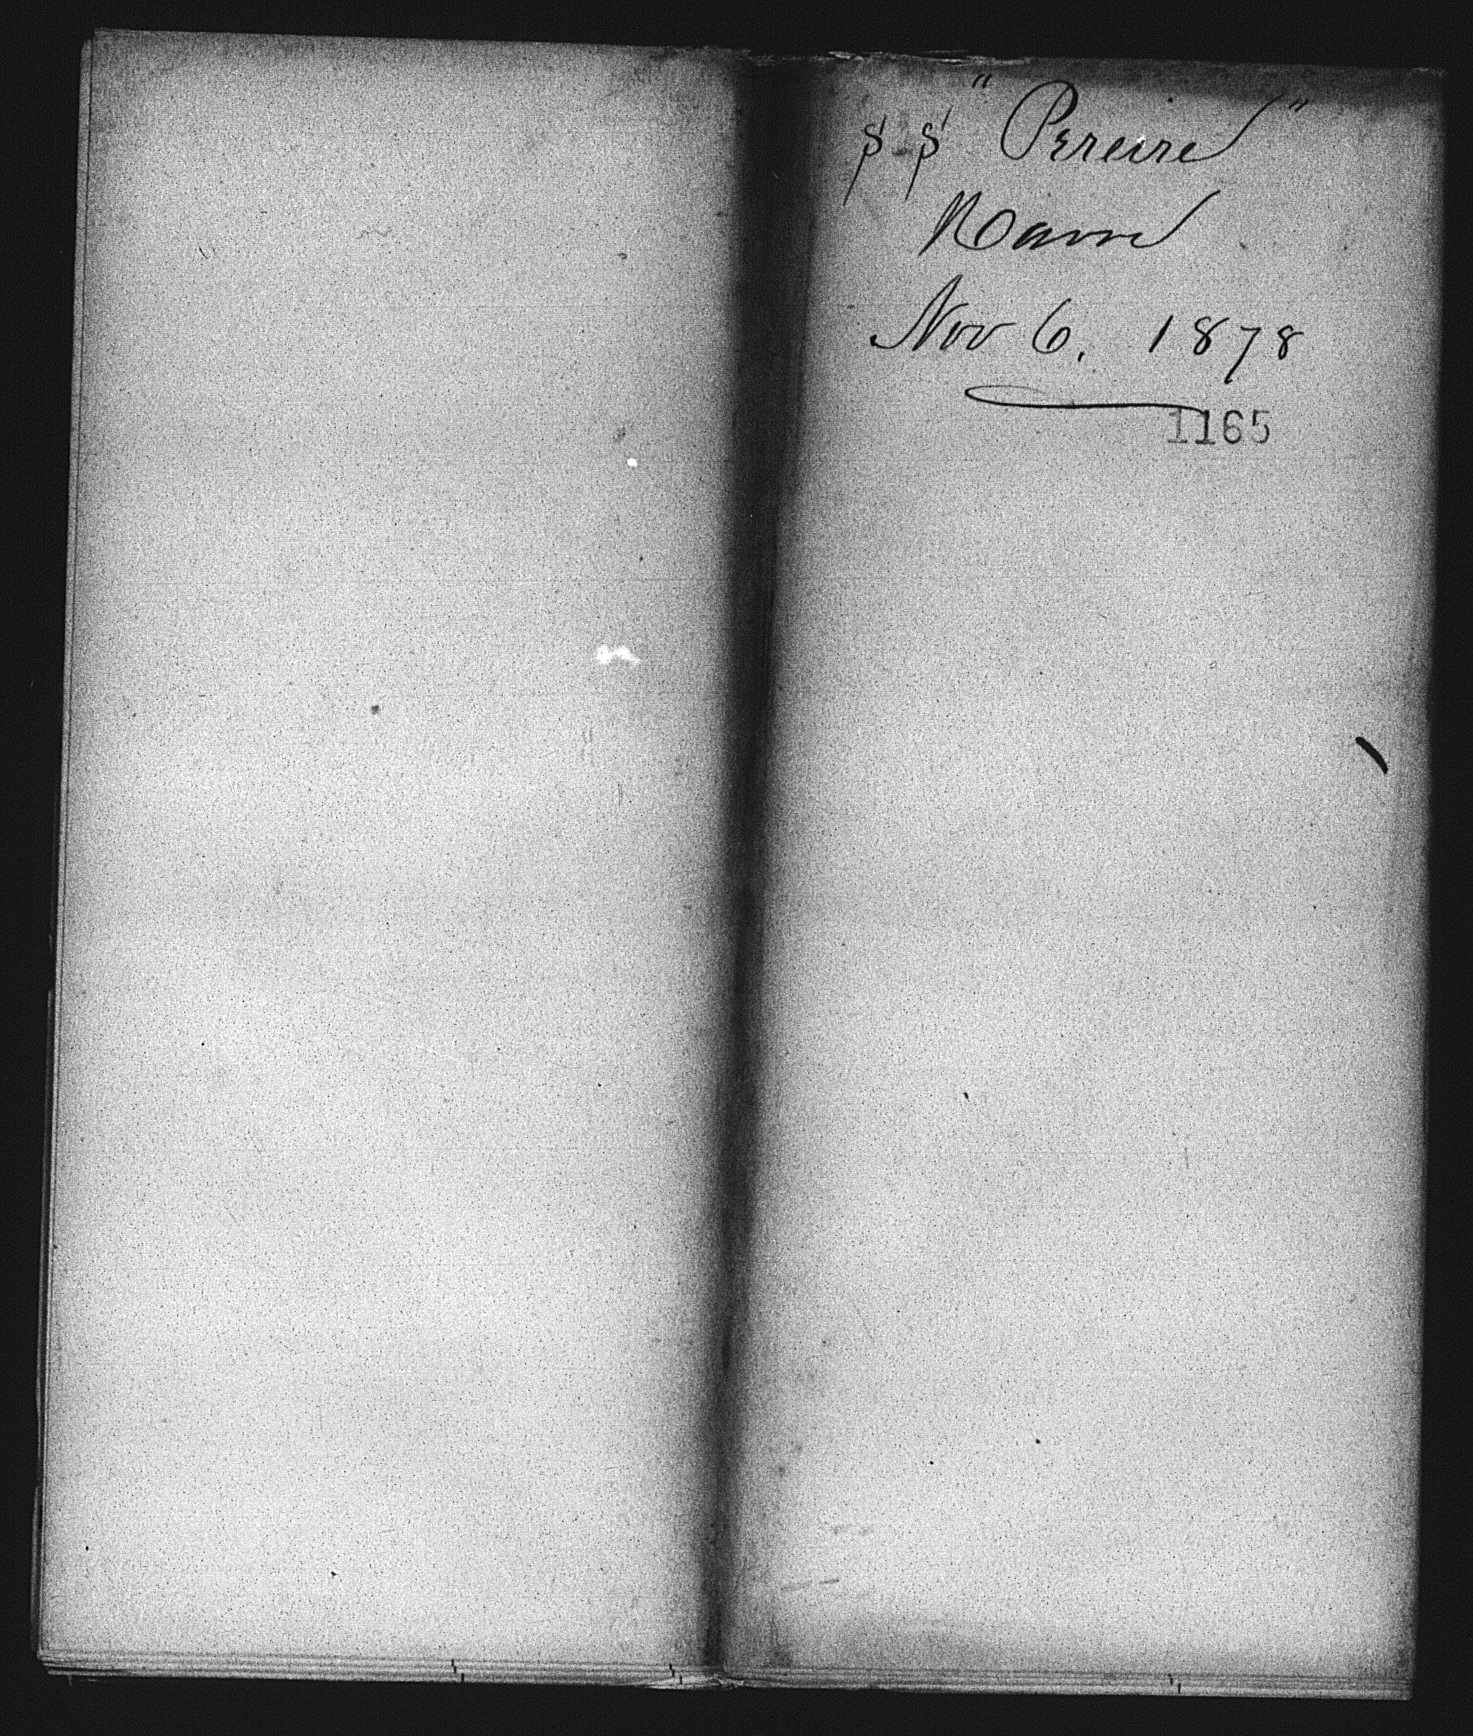 SS "Pereire"
Havre
Nov 6. 1878
1165